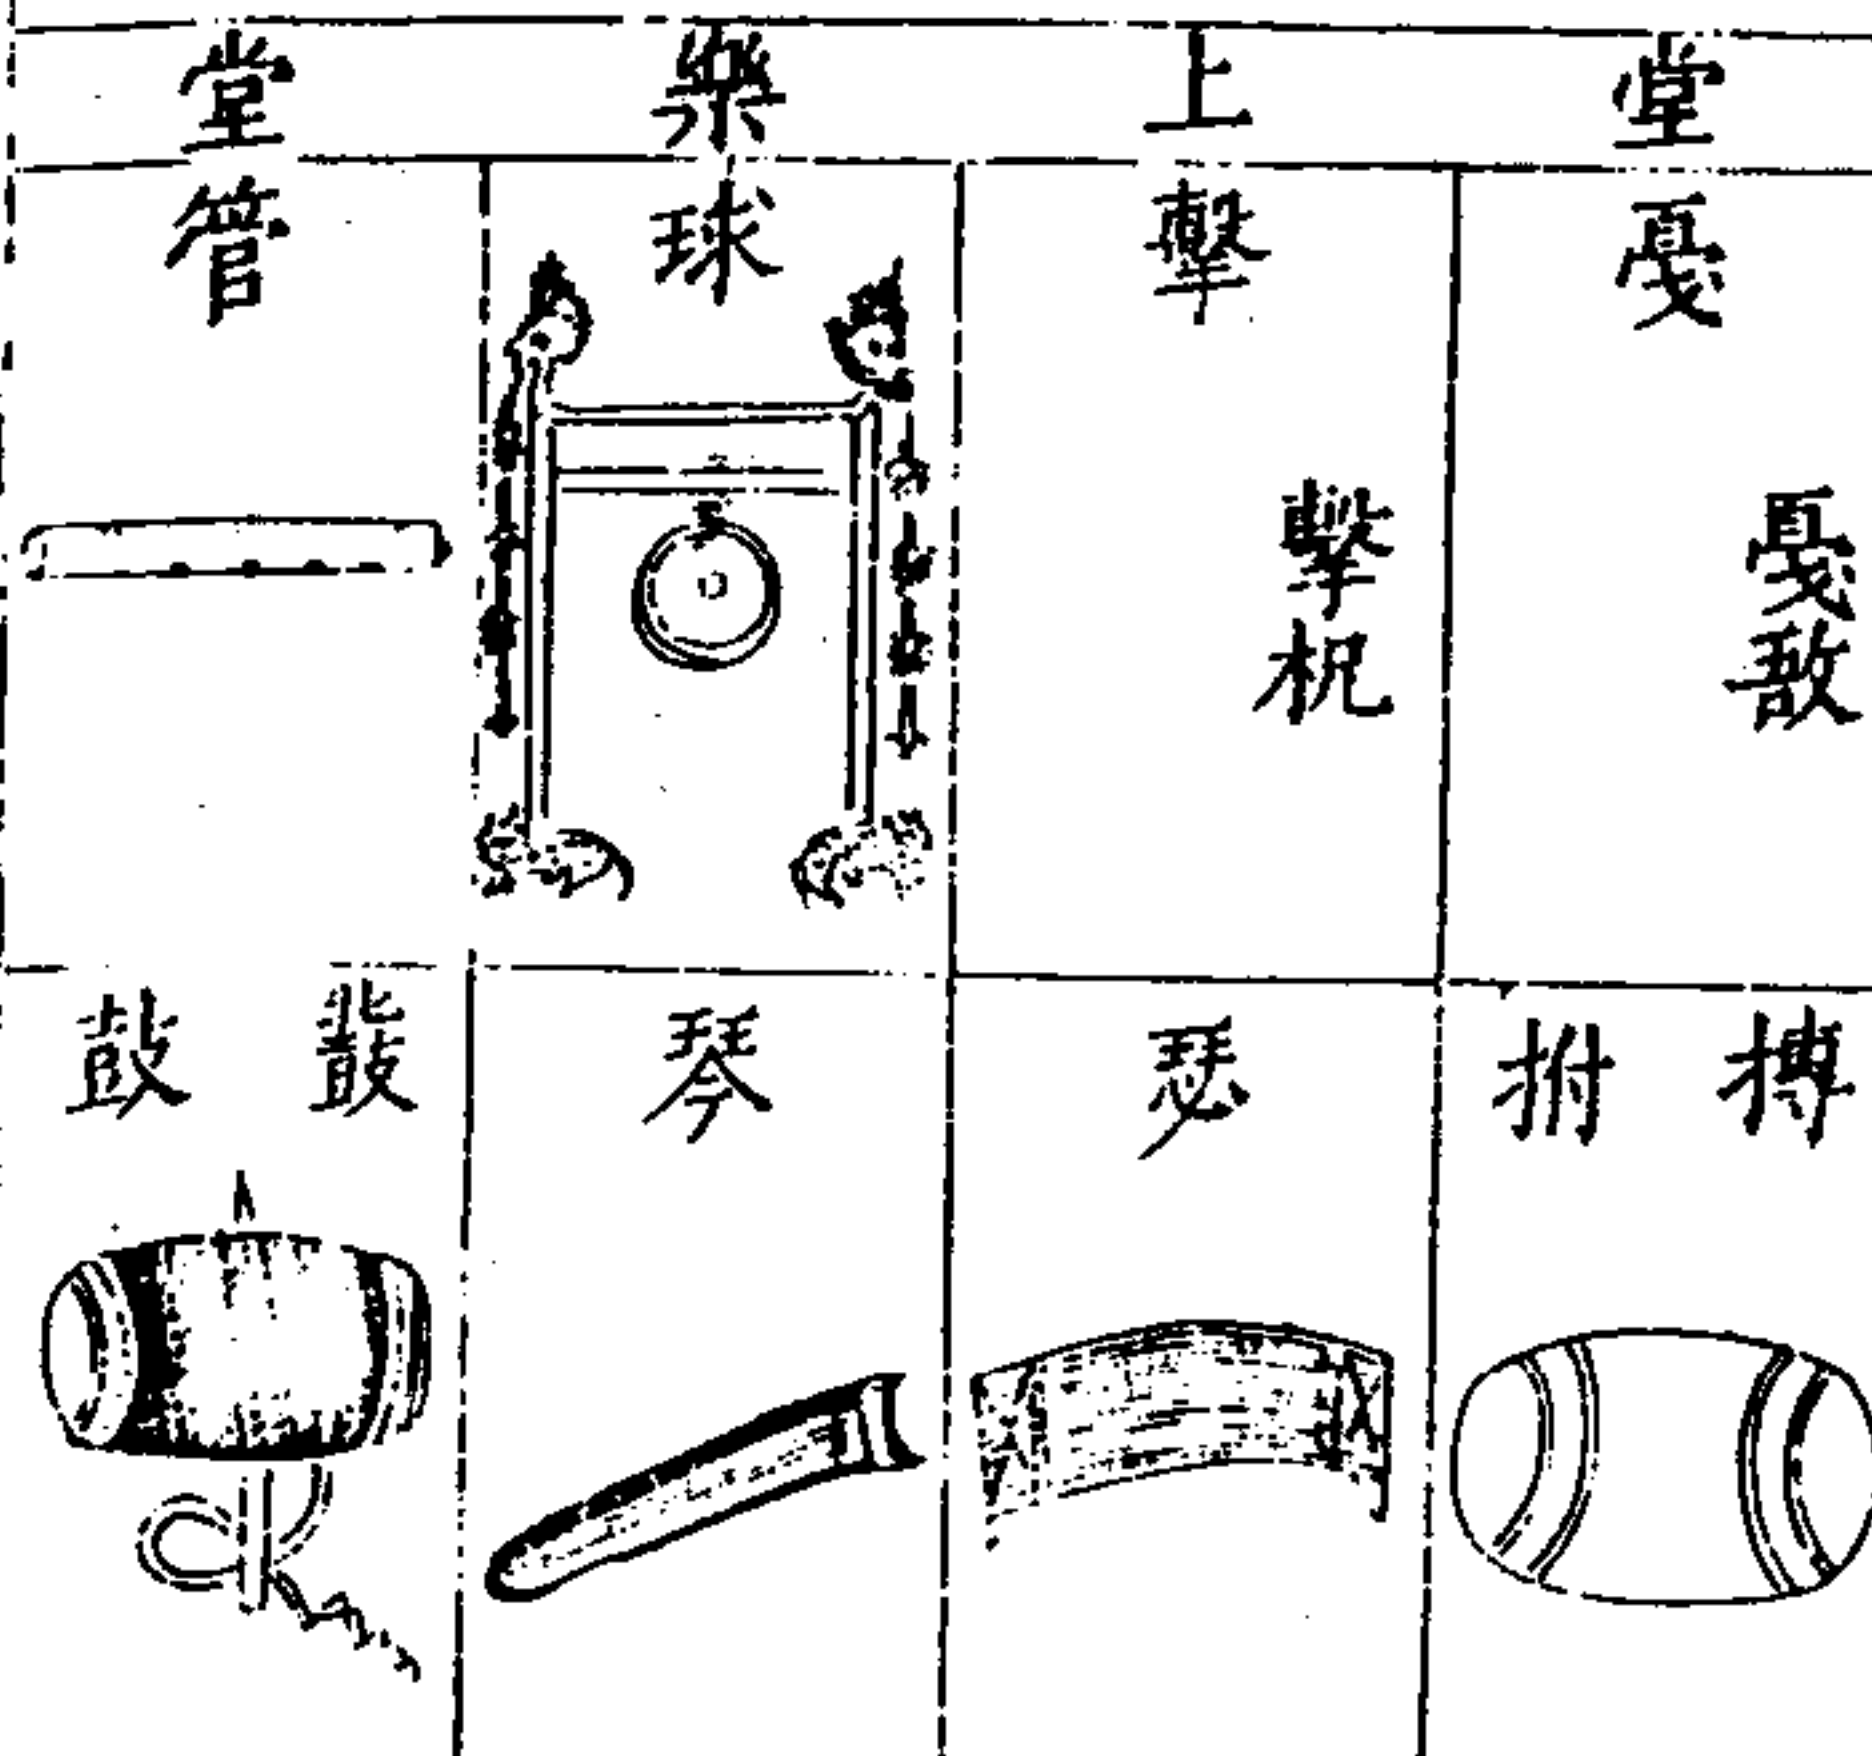 堂上樂堂
戛
戛敔
擊
擊柷
球
管
搏拊
瑟
琴
鼗鼓